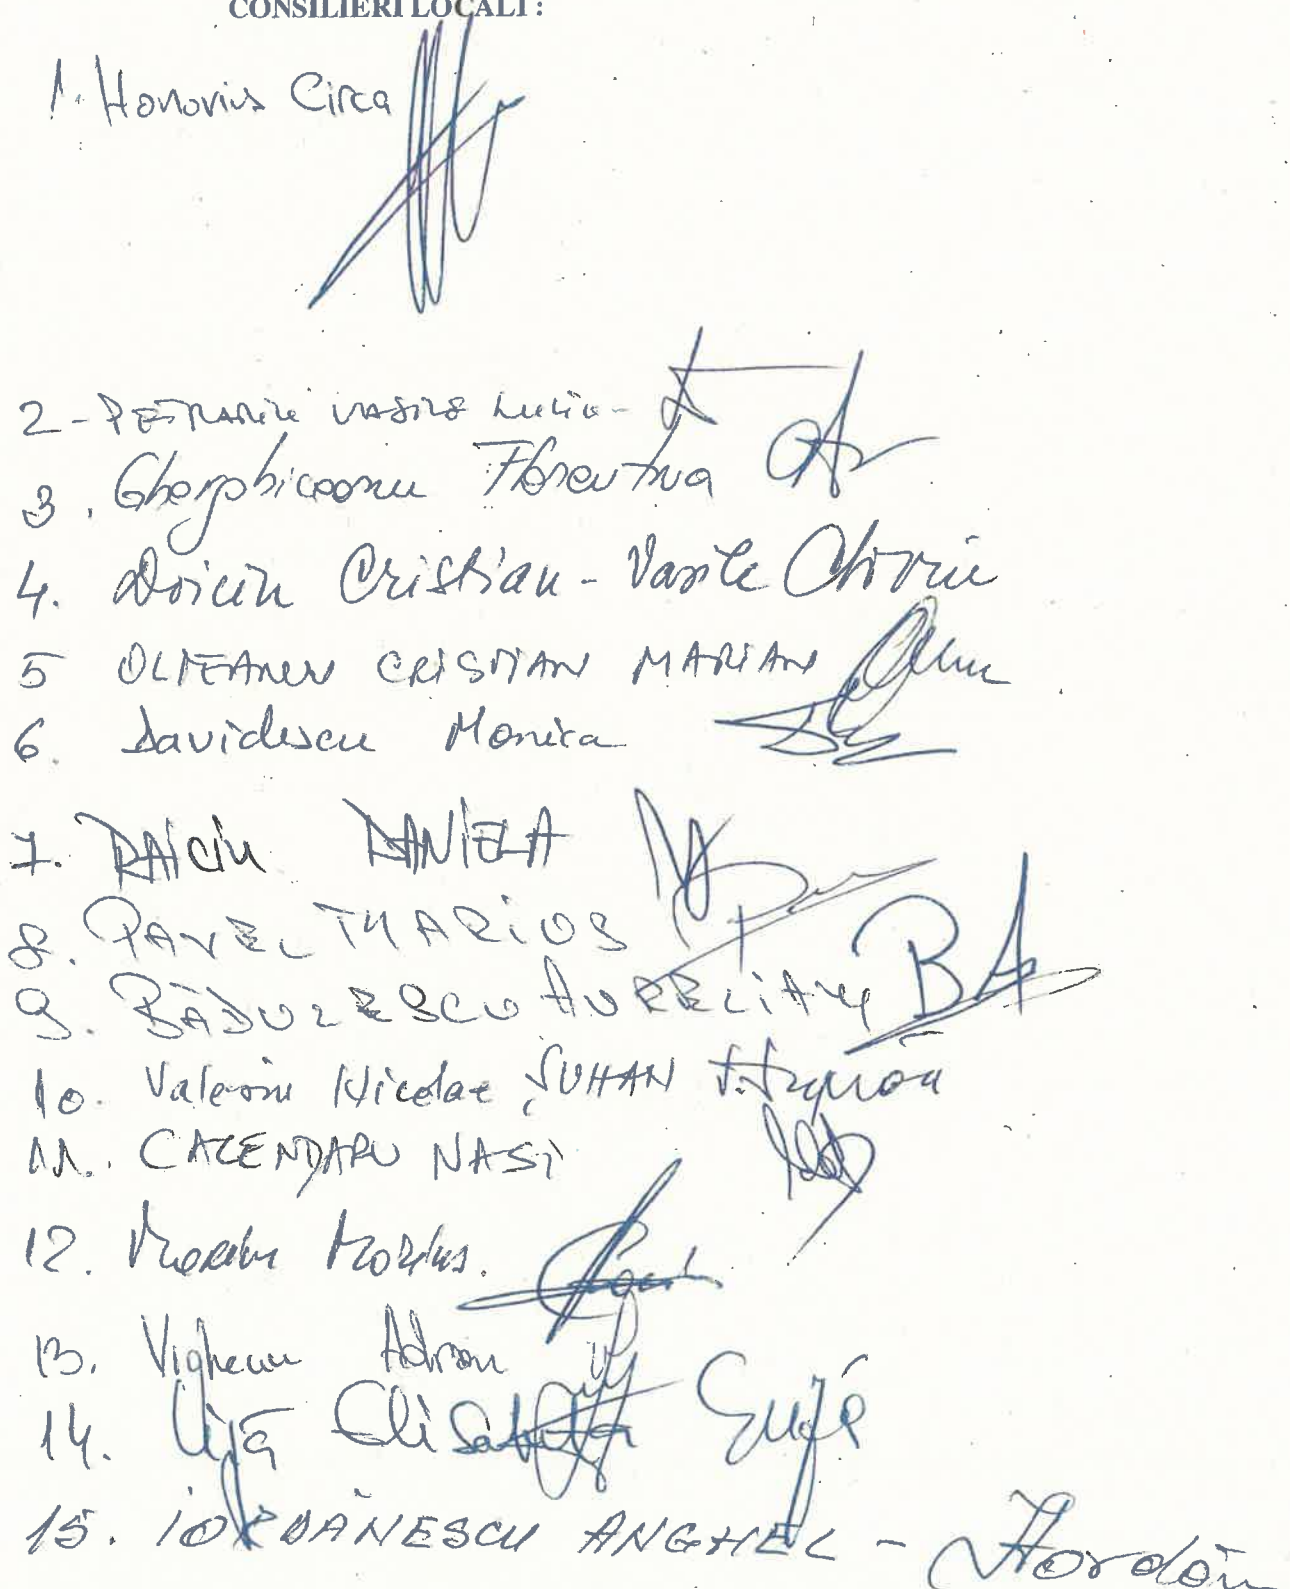 CONSILIERI LOCALI :
1. Honorius Circa
2 - PETRARIU VASILE Luciu -
3. Florentina
4. Doiciu Cristian - Vasile
5 OLTEANU CRISTIAN MARIAN
6. Davidescu Monica
7. RAICIU DANIELA
8. PAVEL MARIUS
9. BĂDULESCU AURELIAN
10. Valeriu Nicolae ȘUHAN
11. CALENDARU NASI
12. Marius.
13. Vigheciu Adrian
14. Liță Elisabeta
15. IORDĂNESCU ANGHEL -